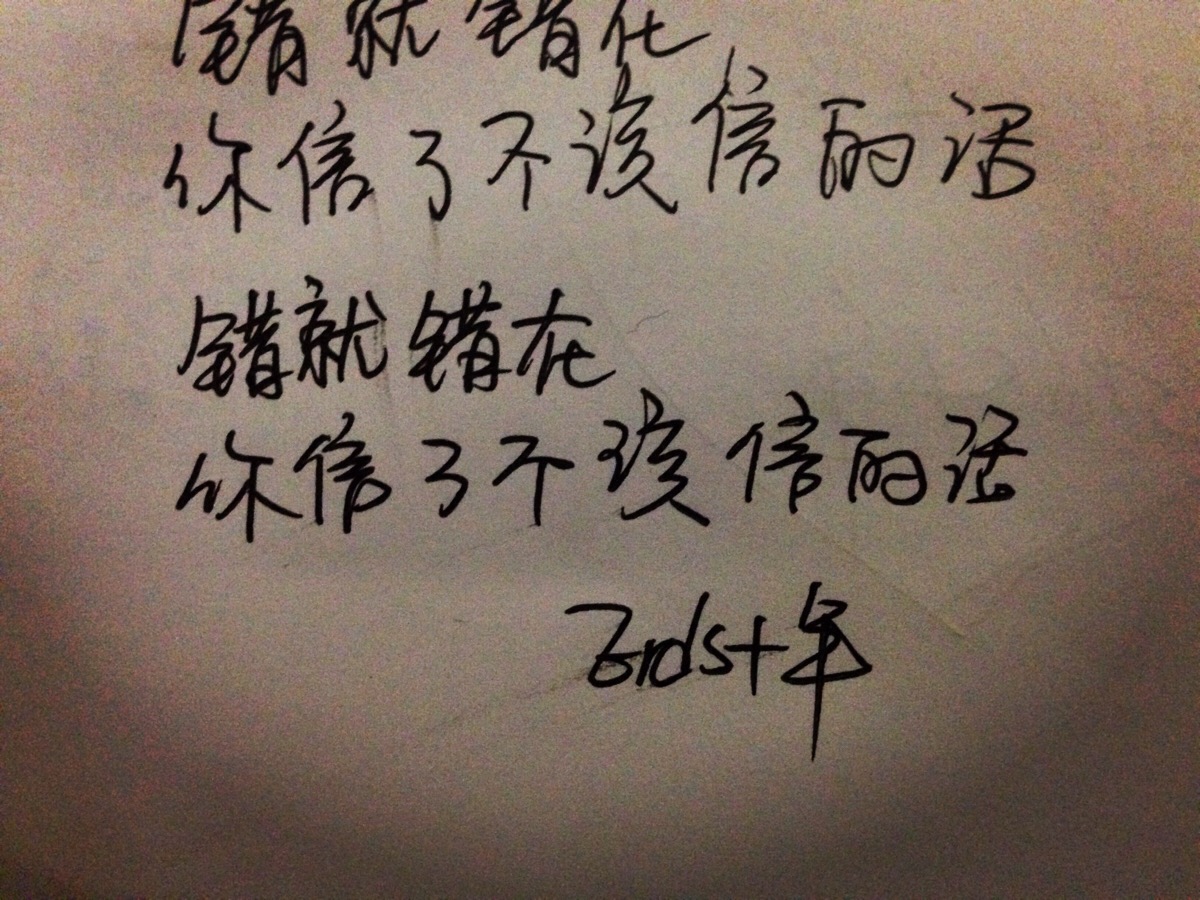 错就错在
你信了不该信的话
错就错在
你信了不该信的话
Erds十年